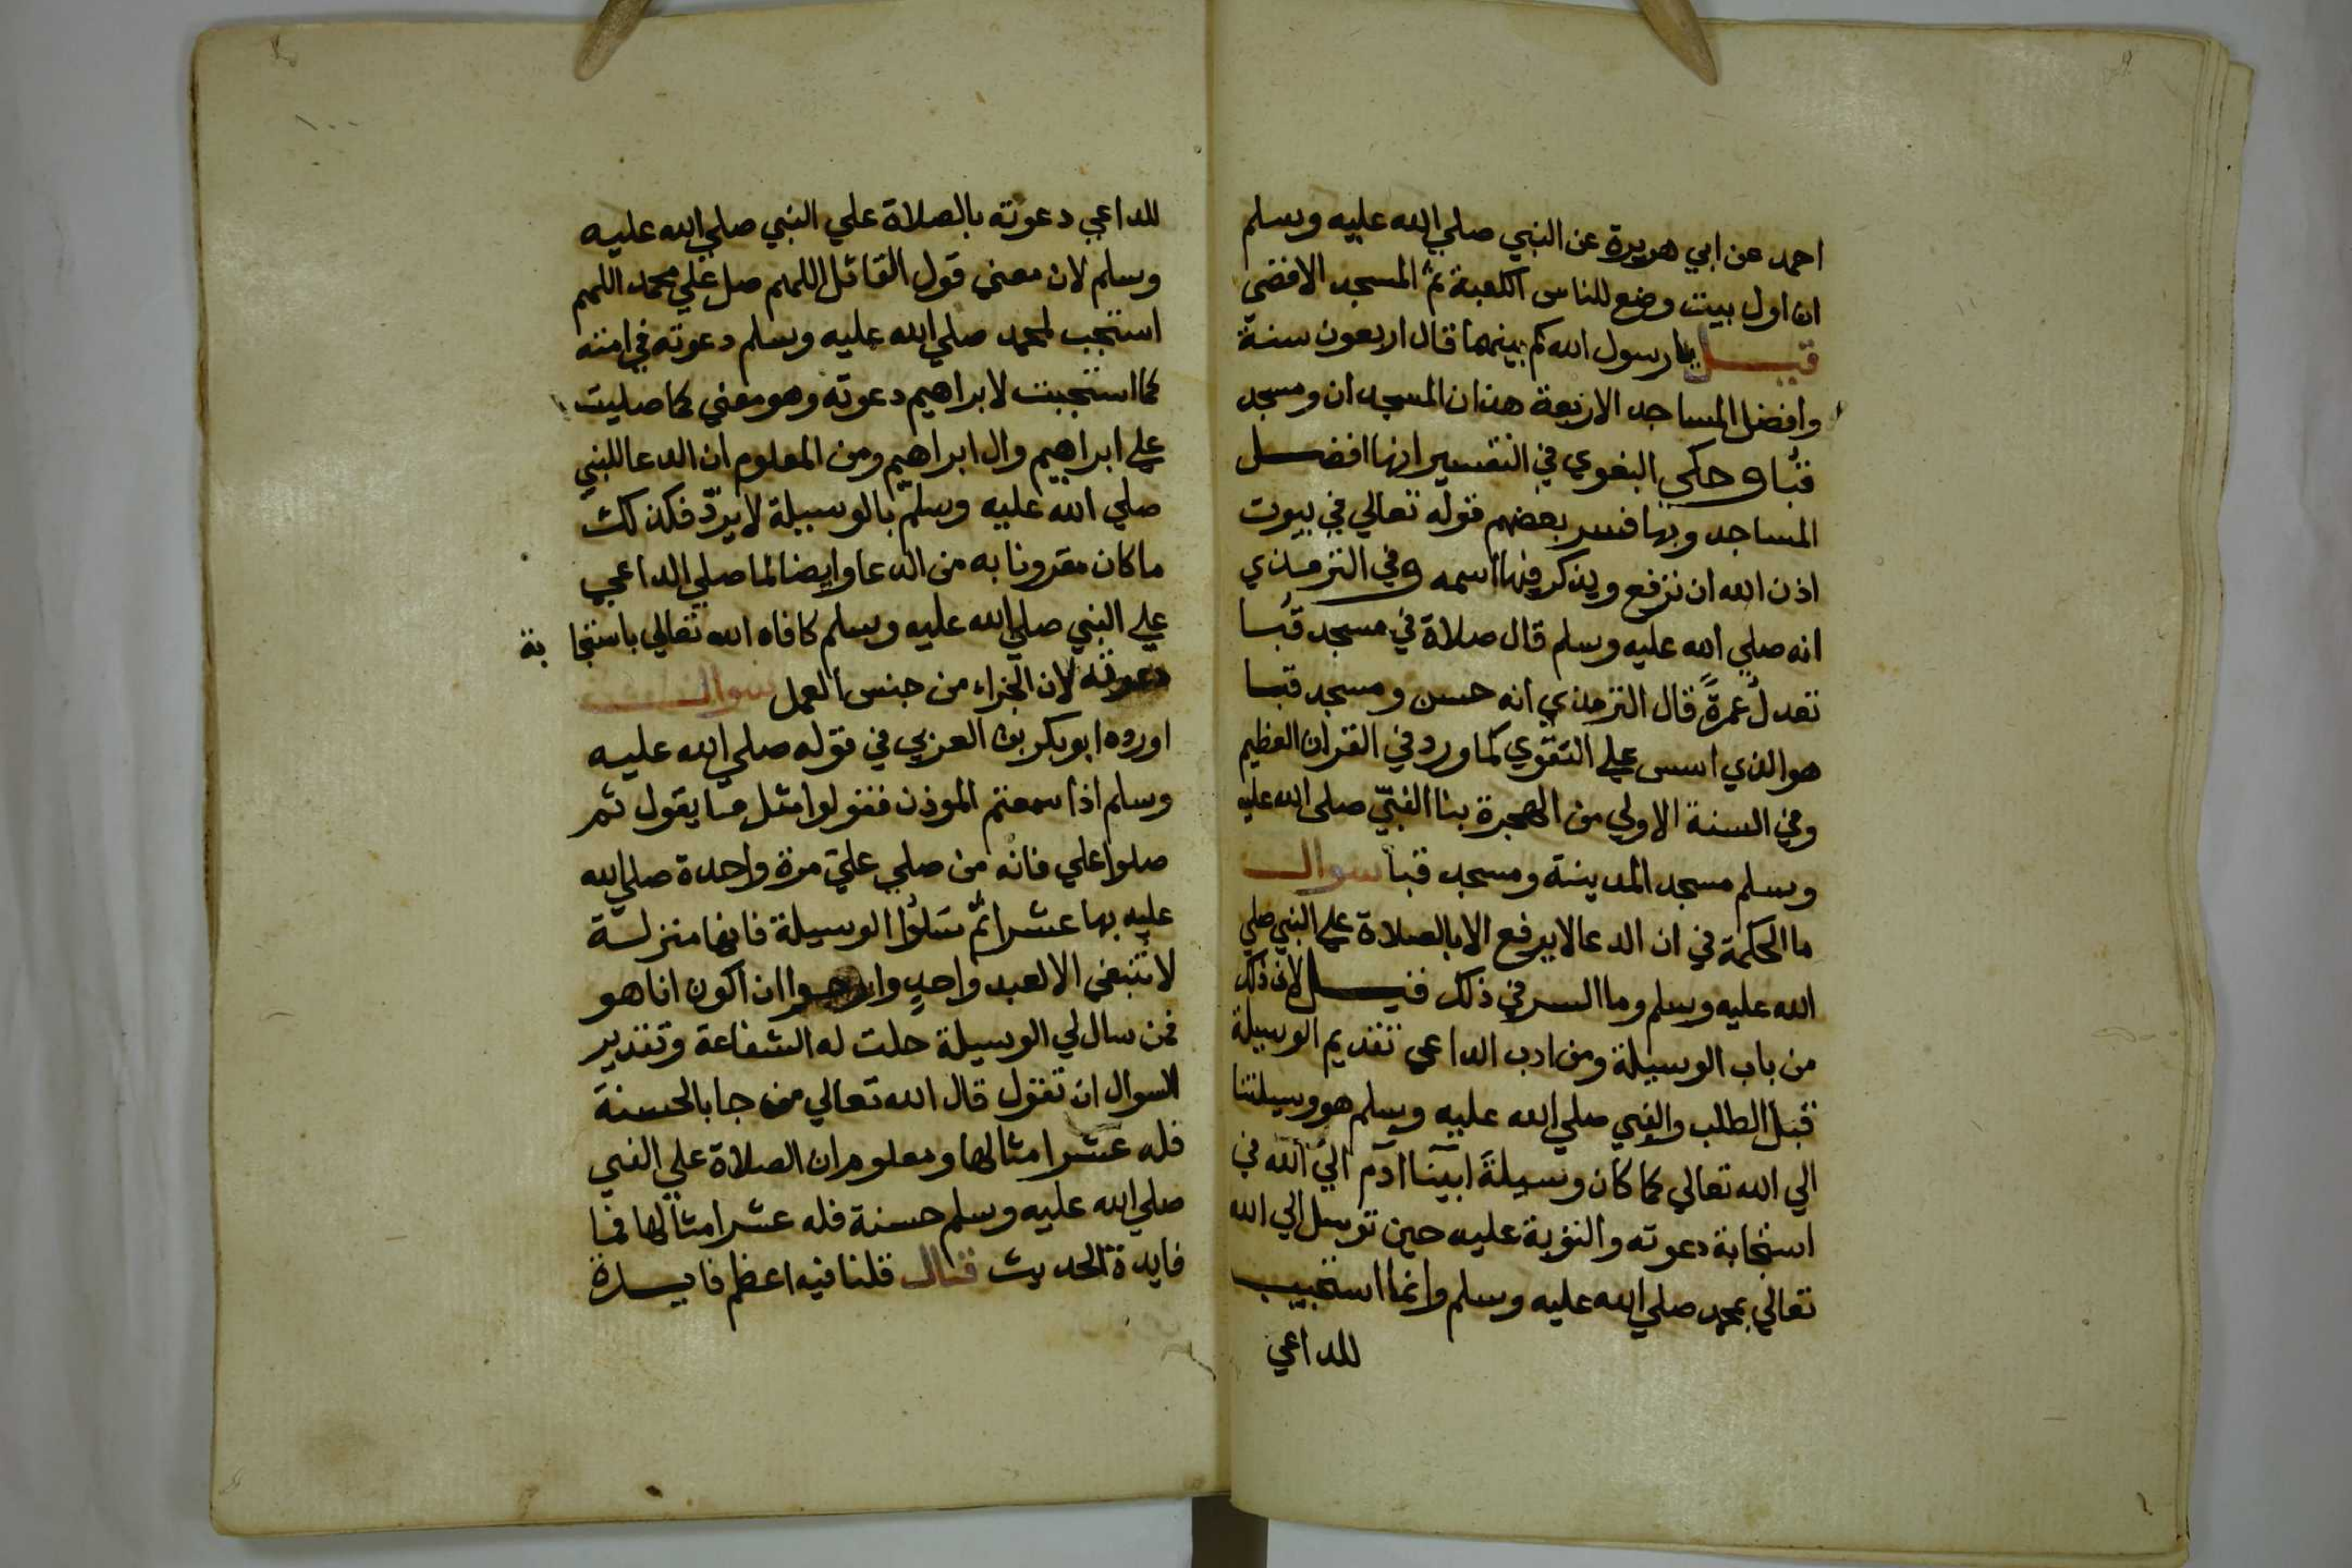 احمد عن ابي هريرة عن النبي صلي الله عليه وسلم
ان اول بيت وضع للناس الكعبة ثم المسجد الاقصي
قيل يا رسول الله كم بينهما قال اربعون سنة
وافضل المساجد الاربعة هذان المسجدان ومسجد
قبا وحكي البغوي في التفسير انها افضل
المساجد وبها فسر بعضهم قوله تعالي في بيوت
اذن الله ان ترفع ويذكر فيها اسمه وفي الترمذي
انه صلي الله عليه وسلم قال صلاة في مسجد قبا
تعدل عمرة قال الترمذي انه حسن ومسجد قبا
هو الذي اسس علي التقوي كما ورد في القران العظيم
وفي السنة الاولي من الهجرة بنا النبي صلي الله عليه
وسلم مسجد المدينة ومسجد قبا سوال
ما الحكمة في ان الدعا لا يرفع الا بالصلاة علي النبي صلي
الله عليه وسلم وما السر في ذلك قيل لان ذلك
من باب الوسيلة ومن ادب الداعي تقديم الوسيلة
قبل الطلب والنبي صلي الله عليه وسلم هو وسيلتنا
الي الله تعالي كما كان وسيلة ابينا ادم الي الله في
استجابة دعوته والتوبة عليه حين توسل الي الله
تعالي بمحمد صلي الله عليه وسلم وانما استجيب
للداعي
للداعي دعوته بالصلاة علي النبي صلي الله عليه
وسلم لان معني قول القائل اللهم صل علي محمد اللهم
استجب لمحمد صلي الله عليه وسلم دعوته في امته
كما استجبت لابراهيم دعوته وهو معني كما صليت
علي ابراهيم وال ابراهيم ومن المعلوم ان الدعا للنبي
صلي الله عليه وسلم بالوسيلة لا يردّ فكذلك
ما كان مقرونا به من الدعا وايضا لما صلي الداعي
علي النبي صلي الله عليه وسلم كافاه الله تعالي باستجابة
دعوته لان الجزاء من جنس العمل سوال
اورده ابو بكر بن العربي في قوله صلي الله عليه
وسلم اذا سمعتم الموذن فقولوا مثل ما يقول ثم
صلوا علي فانه من صلي عليّ مرة واحدة صلي الله
عليه بها عشرا ثم سَلوُا الوسيلة فانها منزلة
لا تنبغي الا لعبد واحد وارجوا ان اكون انا هو
فمن سال لي الوسيلة حلت له الشفاعة وتقدير
السوال ان تقول قال الله تعالي من جا بالحسنة
فله عشر امثالها ومعلوم ان الصلاة علي النبي
صلي الله عليه وسلم حسنة فله عشر امثالها فما
فايدة الحديث قال قلنا فيه اعظم فايدة